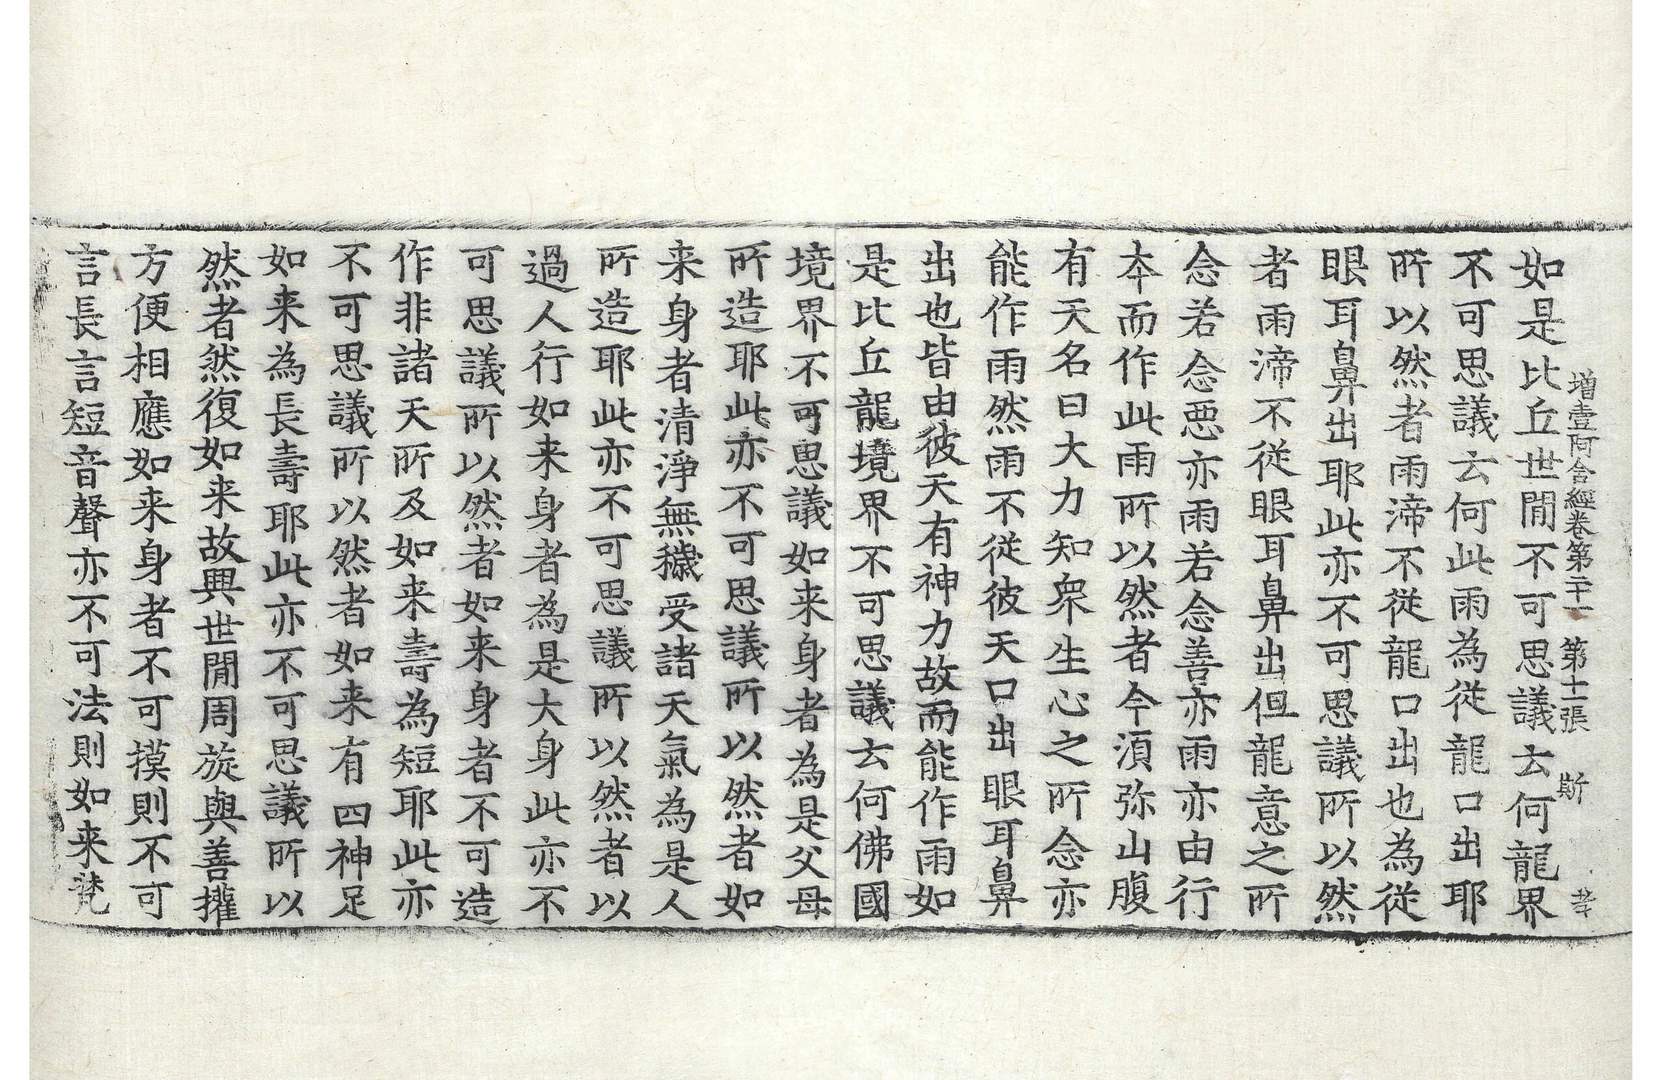 增壹阿含經卷第二十一　第十一張　斯
如是比丘世閒不可思議云何龍界
不可思議云何此雨為從龍口出耶
所以然者雨渧不從龍口出也為從
眼耳鼻出耶此亦不可思議所以然
者雨渧不從眼耳鼻出但龍意之所
念若念惡亦雨若念善亦雨亦由行
夲而作此雨所以然者今湏弥山腹
有天名曰大力知衆生心之所念亦
能作雨然雨不從彼天口出眼耳鼻
出也皆由彼天有神力故而能作雨如
是比丘龍境界不可思議云何佛國
境界不可思議如来身者為是父母
所造耶此亦不可思議所以然者如
来身者清淨無穢受諸天氣為是人
所造耶此亦不可思議所以然者以
過人行如来身者為是大身此亦不
可思議所以然者如来身者不可造
作非諸天所及如来壽為短耶此亦
不可思議所以然者如来有四神足
如来為長壽耶此亦不可思議所以
然者然復如来故興世閒周旋與善權
方便相應如来身者不可摸則不可
言長言短音聲亦不可法則如来梵